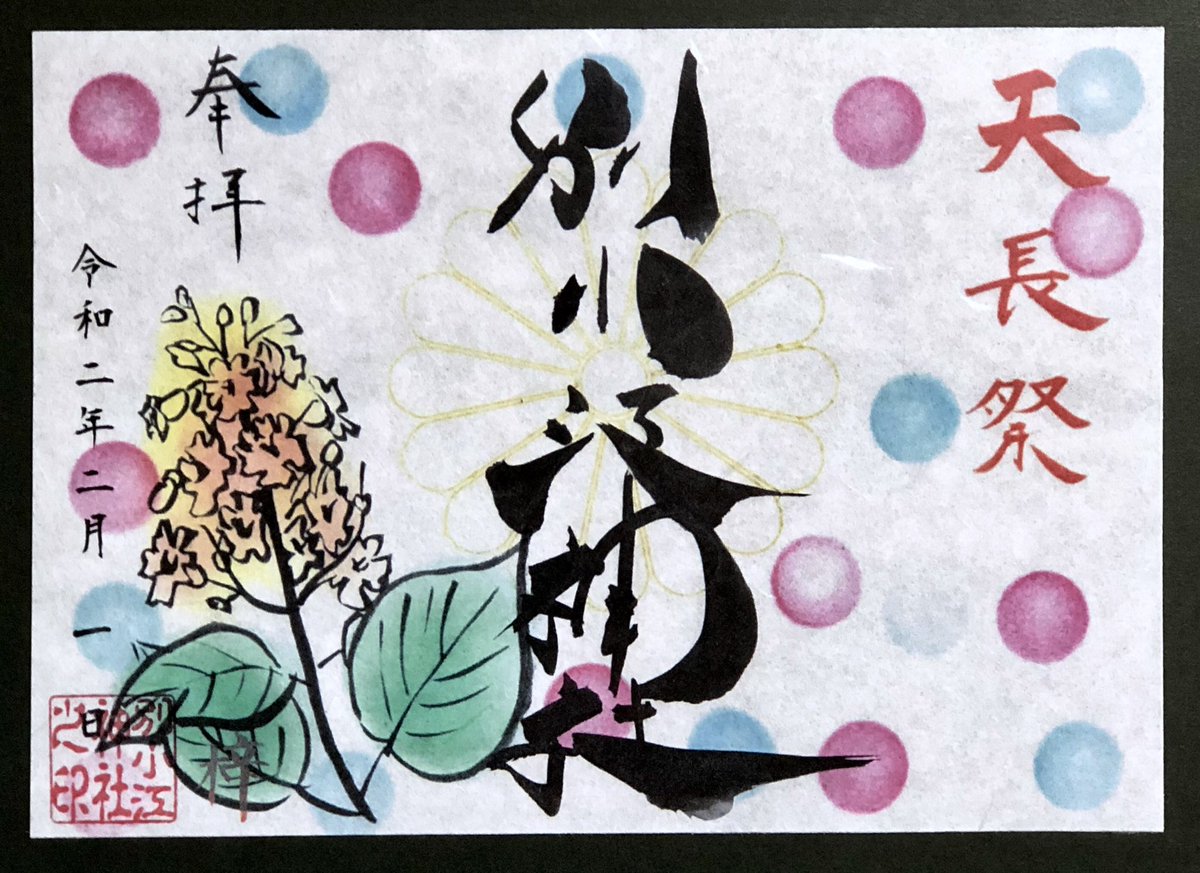 天長祭
別小江神社
奉拝
令和二年二月一日
梓
別小江
神社
之印